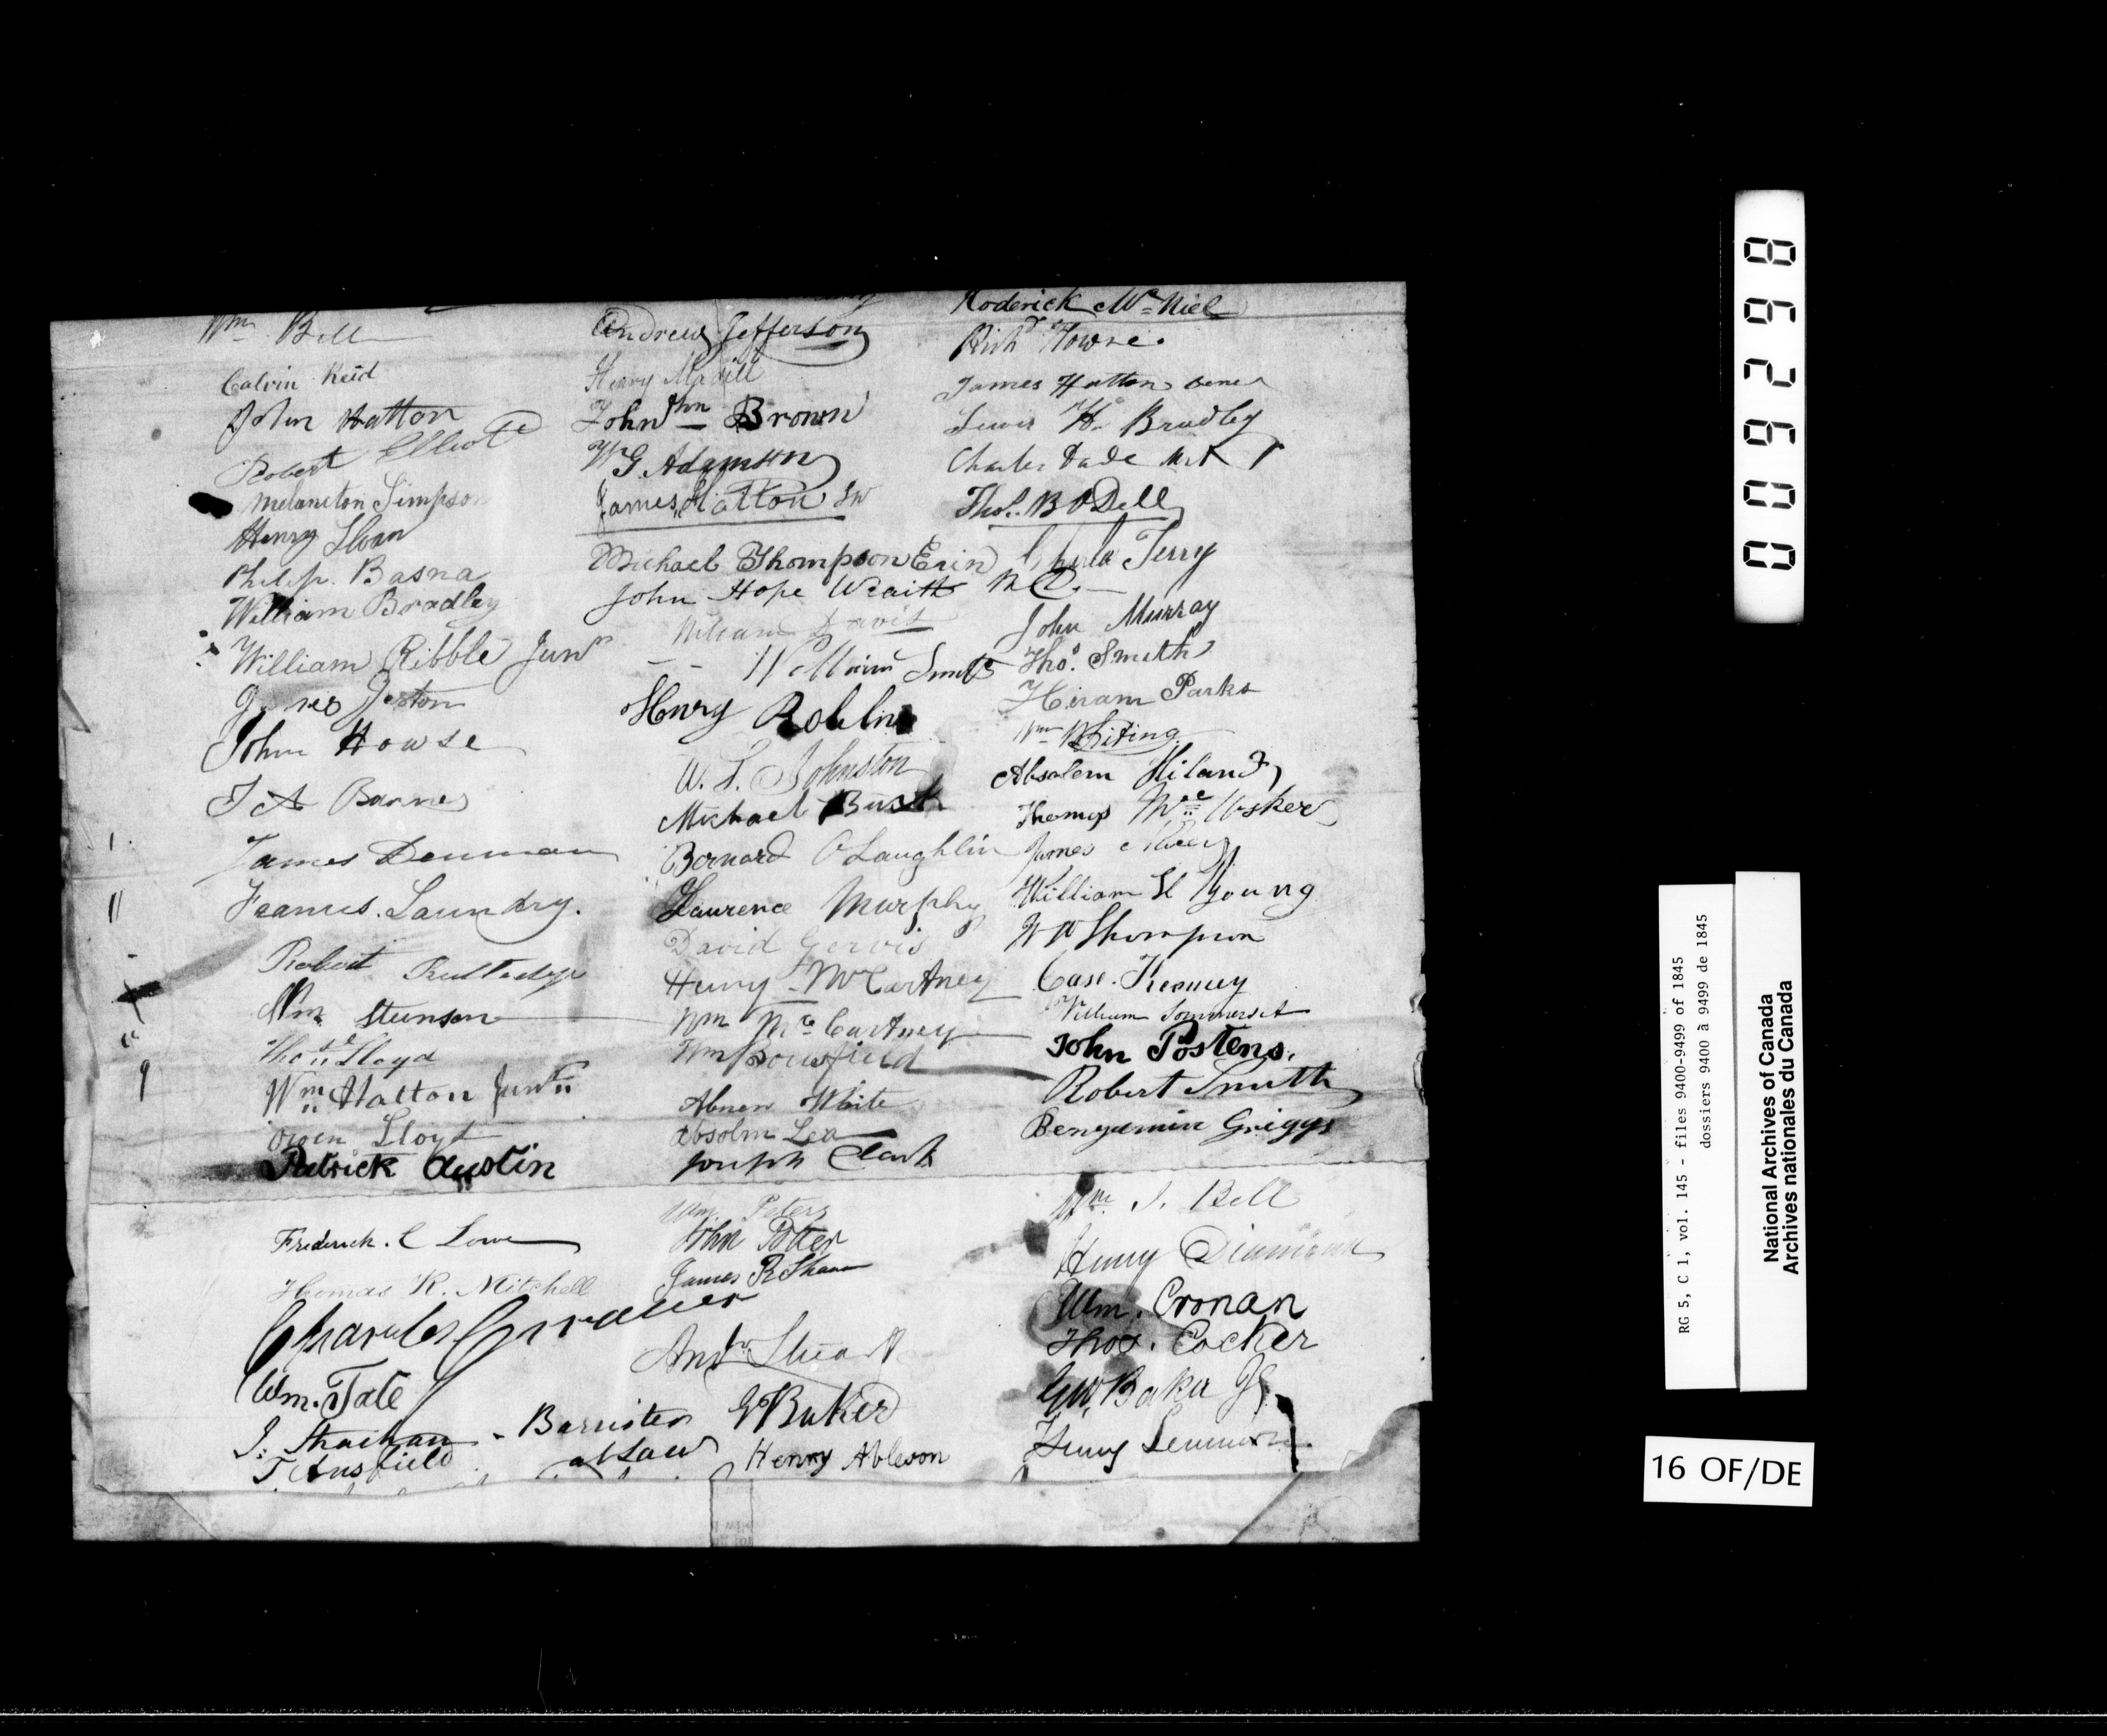 Wm Bell
Calvin Reid
John Hatton
Robert Elliott
Melancton Simpson
Henry Sloan
Philip Basna
William Bradley
William Ribble Junr
John Howse
J A Barnes
James Denman
Laundry.
Robert Rutledge
Wm Steenson
Thos Lloyd
Wm Hatton Junr
Owen Lloyd
Patrick Austin
Frederick. C Lowe
Thomas R. Mitchell
Charles
Wm. Tate
J. Strachan - Barrister
at Law
Andrew Jefferson
Henry
John Brown
W G Adamson
James Hatton
Michael Thompson Erin
John Hope Wraith
William Davis
William Smith
Henry Roblin
W. L. Johnston
Michael
Bernard O Laughlin
Laurence Murphy
David Gervis
Henry McCartney
Wm McCartney
Wm Bousfield
Abner White
Absolm Lea
Joseph Clark
Wm Peters
John Potter
James R Shaw
G Baker
Henry Ableson
Roderick McNiel
Richd Howse.
James Hatton
Lewis H. Bradley
Charles
Thos. B ODell
Terry
John Murray
Thos. Smith
Hiram Parks
Wm Whiting
Absolem Hiland
Thomas
James
William H Young
W W Thompson
William Sommerset
John Postens.
Robert Smith
Benyamin Griggs
Wm. J. Bell
Henry Diamond
Wm. Cronan
Thos. Cocker
Geo Baker
Henry Lemmon
009298
RG 5, C 1, vol. 145 - files 9400-9499 of 1845
dossiers 9400 à 9499 de 1845
National Archives of Canada
Archives nationales du Canada
16 OF/DE